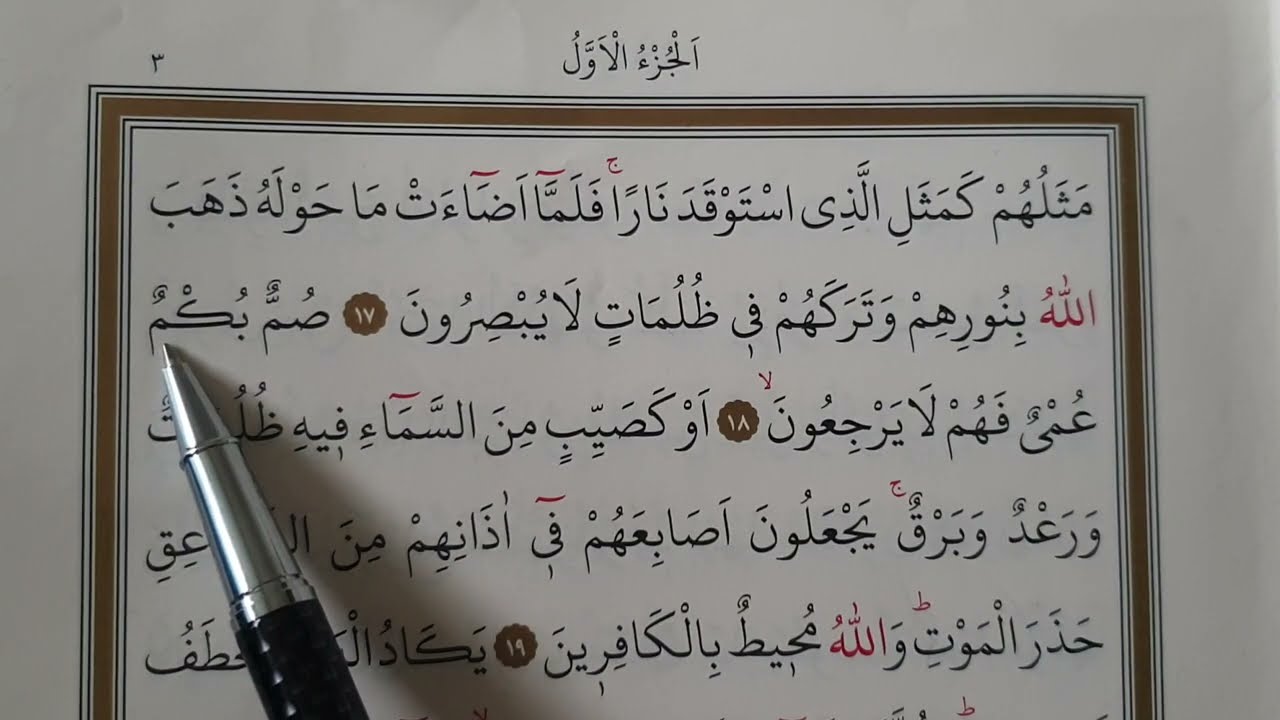 اَلْجُزْءُ الْاَوَّلُ
٣
مَثَلُهُمْ كَمَثَلِ الَّذِى اسْتَوْقَدَ نَارًاۚ فَلَمَّٓا اَضَٓاءَتْ مَا حَوْلَهُ ذَهَبَ
اللّٰهُ بِنُورِهِمْ وَتَرَكَهُمْ فٖى ظُلُمَاتٍ لَا يُبْصِرُونَ ١٧ صُمٌّ بُكْمٌ
عُمْىٌ فَهُمْ لَا يَرْجِعُونَۙ ١٨ اَوْ كَصَيِّبٍ مِنَ السَّمَٓاءِ فٖيهِ
وَرَعْدٌ وَبَرْقٌۚ يَجْعَلُونَ اَصَابِعَهُمْ فٖٓى اٰذَانِهِمْ مِنَ
حَذَرَ الْمَوْتِؕ وَاللّٰهُ مُحٖيطٌ بِالْكَافِرٖينَ ١٩ يَكَادُ